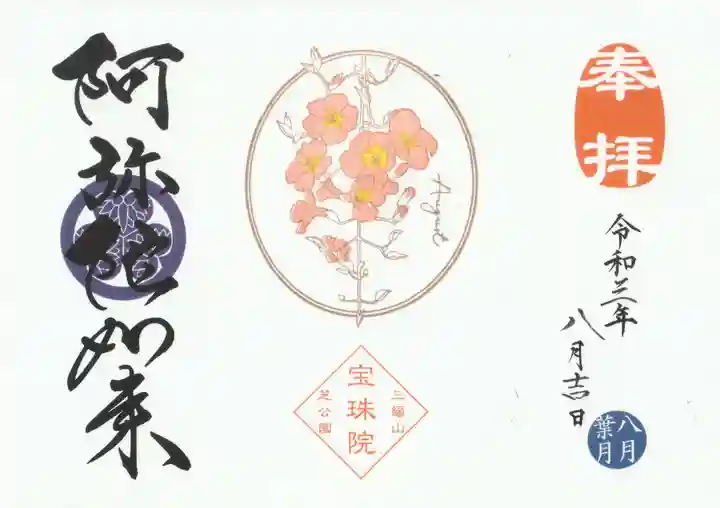 奉拝
令和三年
八月吉日
八月
葉月
August
三縁山
宝珠院
芝公園
阿弥陀如来